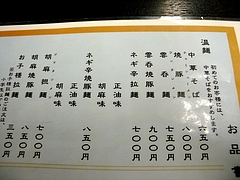 お品書
温麺
初めてのお客様には、
中華そばをおすすめします。
中華そば 六五〇円
焼豚麺 八五〇円
雲呑麺 七五〇円
雲呑焼豚麺 九五〇円
ネギ辛拉麺 七〇〇円
正油味
胡麻味
ネギ辛焼豚麺 八五〇円
正油味
胡麻味
胡麻担麺 七〇〇円
胡麻拉麺
お子様拉麺 三五〇円